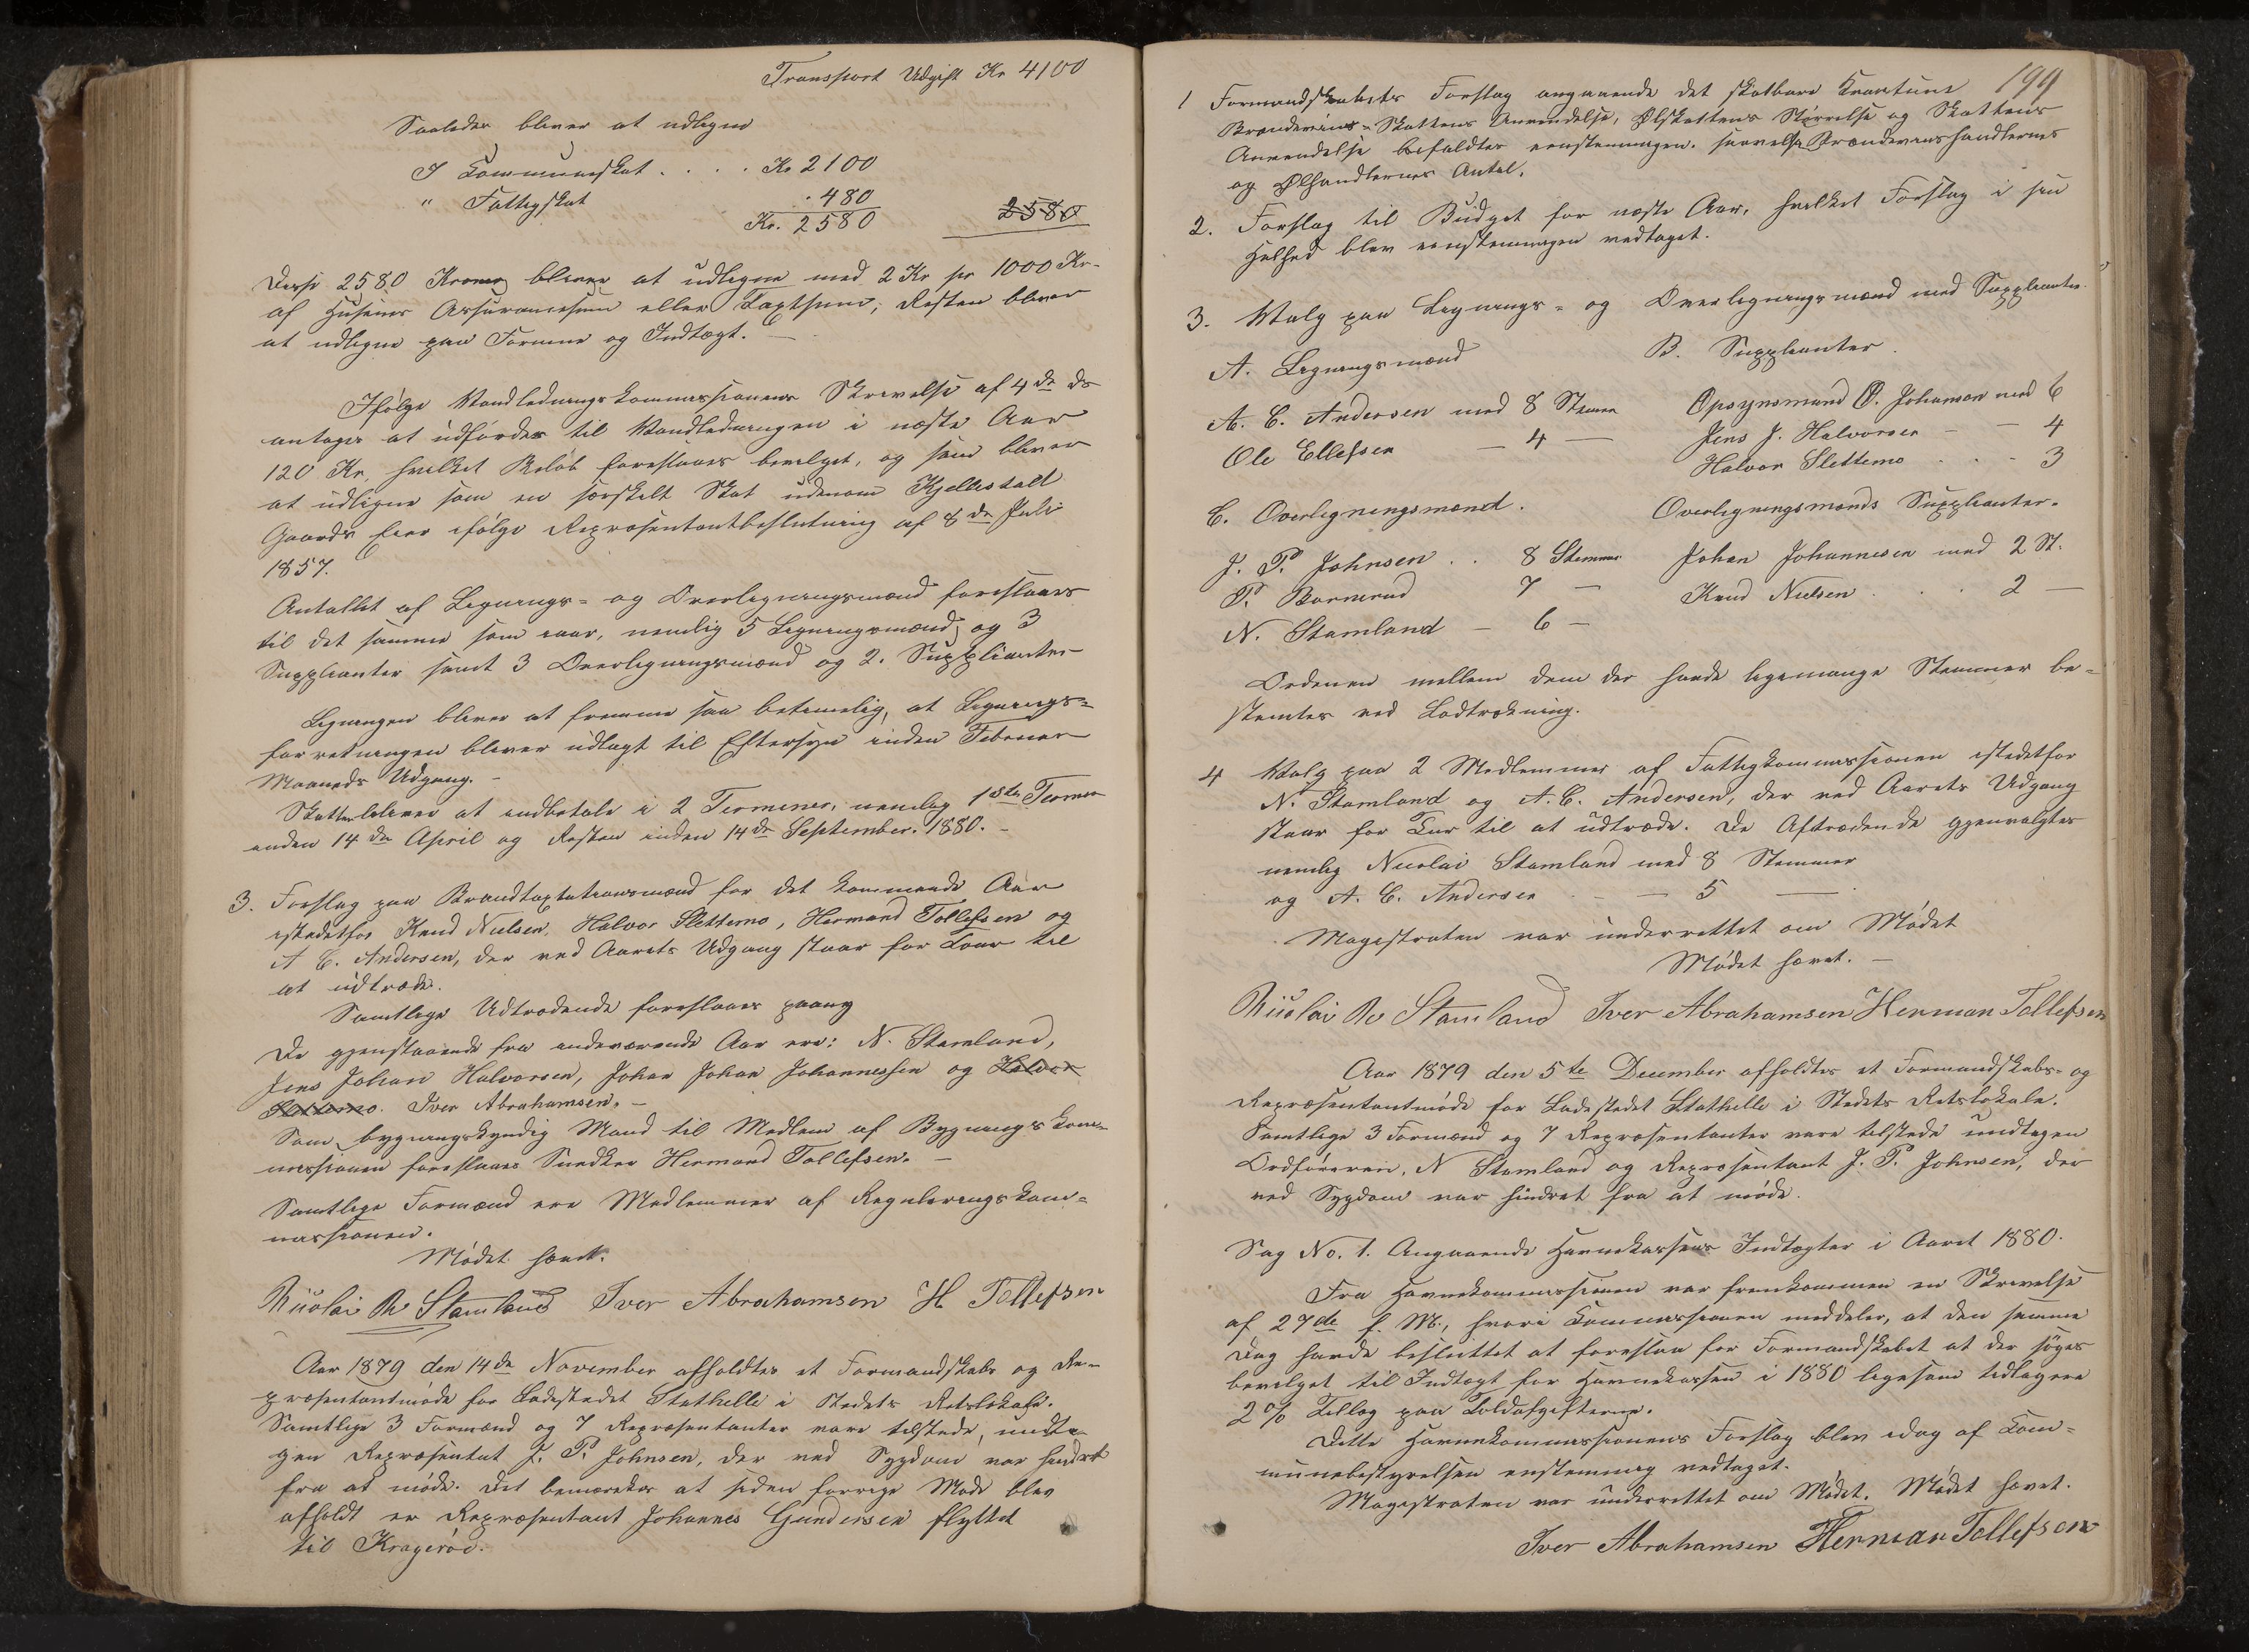 Transport Udgift Kr 4100
Saaledes bliver at udligne
I Communeskat . . . . Kr 2100
" Fattigskat . 480
Kr. 2580 2580
Disse 2580 Kroner bliver at udligne med 2 Kr pr 1000 Kr.
af Husenes Assurancesum eller Taxtsum; Resten bliver
at udligne paa Formue og Indtægt. —
Ifølge Vandledningskommissionens Skrivelse af 4de ds
antages at udfordres til Vandledningen i næste Aar
120 Kr, hvilket Beløb foreslaaes bevilget, og som bliver
at udligne som en særskilt Skat udenom Kjellestad
Gaards Eier ifølge Repræsentantbeslutning af 8de Juli
1857.
Antallet af Lignings- og Overligningsmænd foreslaaes
til det samme som iaar, nemlig 5 Ligningsmænd og 3
Supplianter samt 3 Overligningsmænd og 2. Supplianter
Ligningen bliver at fremme saa betimelig, at Lignings-
forretningen bliver udlagt til Eftersyn inden Februar
Maaneds Udgang. —
Skatten bliver at indbetale i 2 Terminer, nemlig 1ste Termin
inden 14de April og Resten inden 14de September. 1880. —
3. Forslag paa Brandtaxtationsmænd for det kommende Aar
istedetfor Knud Nielsen, Halvor Slettemo, Hermand Tollefsen og
A C. Andersen, der ved Aarets Udgang staar for Tour til
at udtræde.
Samtlige Udtrædende foreslaaes paany
De gjenstaaende fra indeværende Aar ere: N. Stamland,
Jens Johan Halvorsen, Johan Johan Johannessen og Halvor
Slettemo. Iver Abrahamsen. —
Som bygningskyndig Mand til Medlem af Bygningskom-
missionen foreslaaes Snedker Hermand Tollefsen. —
Samtlige Formænd ere Medlemmer af Reguleringskom-
missionen.
Mødet hævet.
Nicolai N Stamland Iver Abrahamsen H Tollefsen
Aar 1879 den 14de November afholdtes et Formandskabs og Re-
præsentantmøde for Ladestedet Stathelle i Stedets Retslokale.
Samtlige 3 Formænd og 7 Repræsentanter vare tilstede, undta-
gen Repræsentant J. P. Johnsen, der ved Sygdom var hindret
fra at møde. Det bemærkes at siden forrige Møde blev
afholdt er Repræsentant Johannes Gundersen flyttet
til Kragerøe.
199
1 Formandskabets Forslag angaaende det skatbare Kvantum
Brændevins-Skattens Anvendelse, Ølskattens Størrelse og Skattens
Anvendelse bifaldtes enstemmigen. saavelsom Brændevinshandlernes
og Ølhandlernes Antal.
2. Forslag til Budget for næste Aar, hvilket Forslag i sin
Helhed blev eenstemmigen vedtaget.
3. Valg paa Lignings- og Overligningsmænd med Supplianter.
A. Ligningsmænd B. Supplianter.
A. C. Andersen med 8 Stemmer Opsynsmand O. Johansen med 6
Ole Ellefsen — 4 — Jens J. Halvorsen — — 4
Halvor Slettemo . . - 3
C. Overligningsmænd. Overligningsmænds Supplianter.
J. P. Johnsen . . 8 Stemmer Johan Johannesen med 2 St.
P. Barmrud 7 — Knud Nielsen . . . 2 —
N. Stamland — 6 —
Ordenen mellem dem der havde ligemange Stemmer be-
stemtes ved Lodtrækning.
4 Valg paa 2 Medlemmer af Fattigkommissionen istedetfor
N. Stamland og A. C. Andersen, der ved Aarets Udgang
staar for Tur til at udtræde. De Aftrædende gjenvalgtes
nemlig Nicolai Stamland med 8 Stemmer
og A. C. Andersen — 5 —
Magistraten var underrettet om Mødet
Mødet hævet. —
Nicolai N Stamland Iver Abrahamsen Herman Tollefsen
Aar 1879 den 5te December afholdtes et Formandskabs- og
Repræsentantmøde for Ladestedet Stathelle i Stedets Retslokale.
Samtlige 3 Formænd og 7 Repræsentanter vare tilstede undtagen
Ordføreren, N Stamland og Repræsentant J. P. Johnsen, der
ved Sygdom var hindret fra at møde.
Sag No. 1. Angaaende Havnekassens Indtægter i Aaret 1880.
Fra Havnekommissionen var fremkommen en Skrivelse
af 27de f. M., hvori Commissionen meddeler, at den samme
Dag havde besluttet at foreslaa for Formandskabet at der søges
bevilget til Indtægt for Havnekassen i 1880 ligesom tidligere
2 % Tillæg paa Toldafgifterne.
Dette Havnekommissionens Forslag blev idag af Com-
munebestyrelsen enstemmig vedtaget.
Magistraten var underrettet om Mødet. Mødet hævet.
Iver Abrahamsen Herman Tollefsen